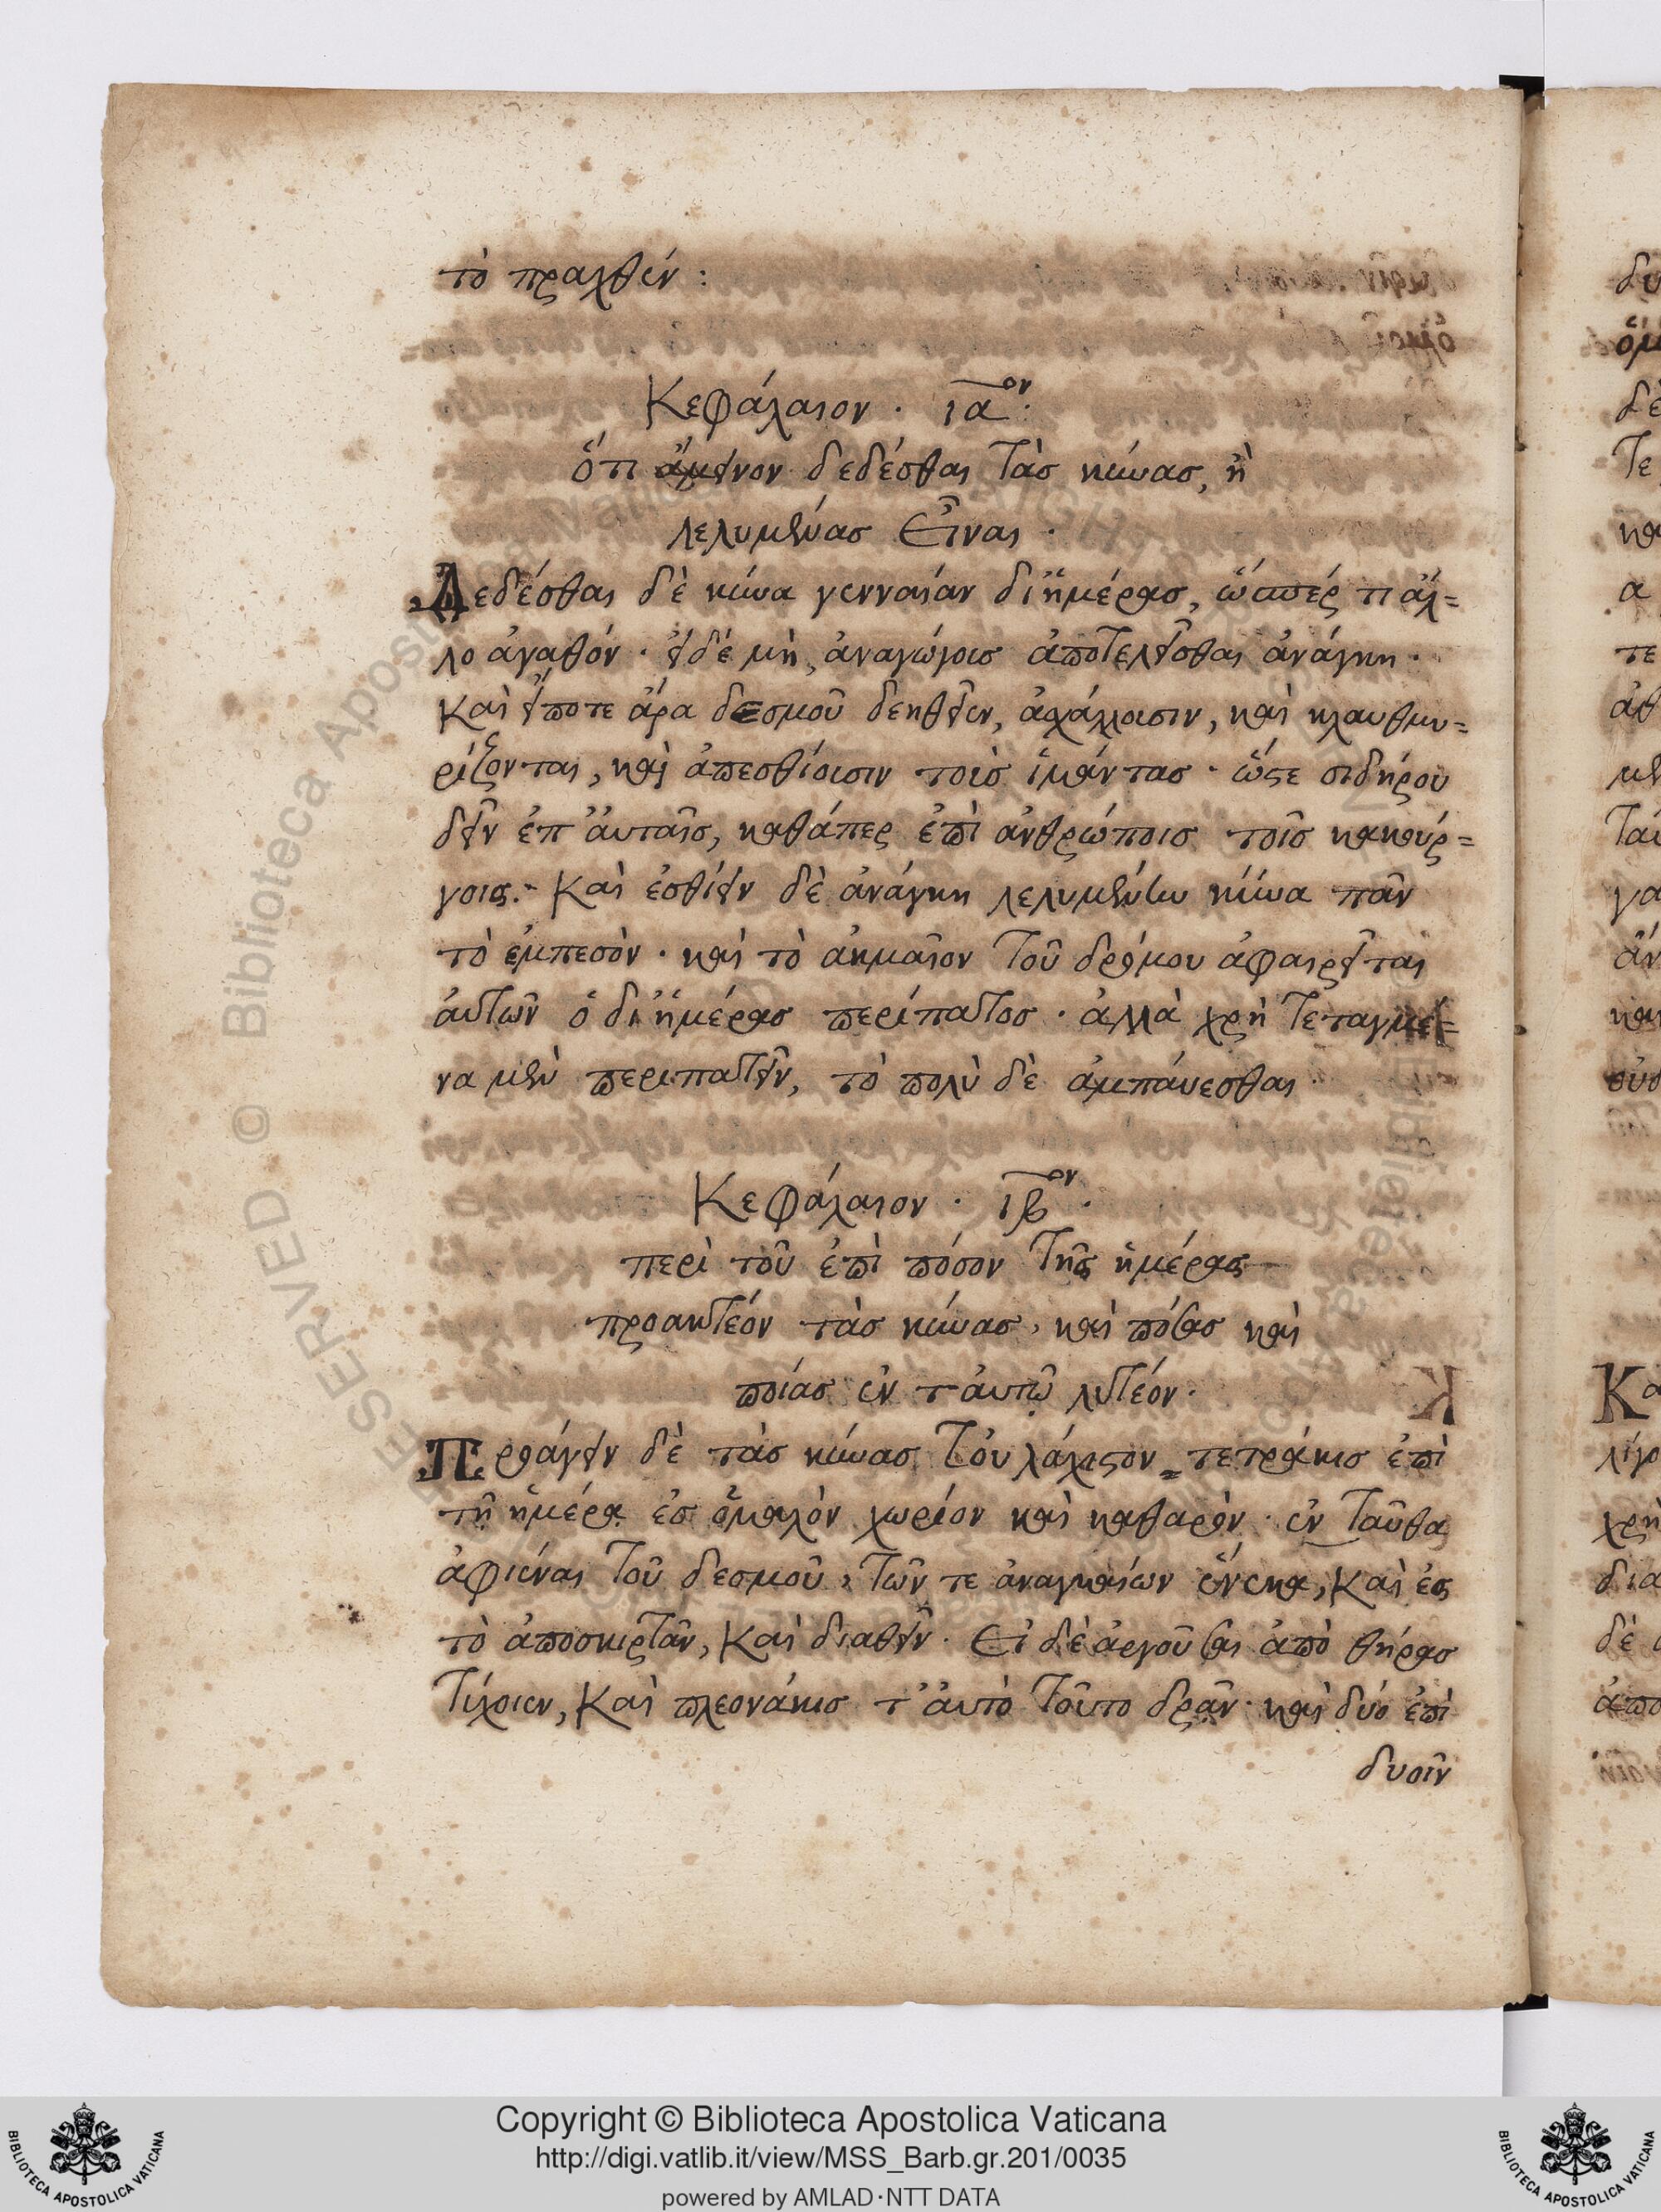 τὸ πραχθέν :
Κεφάλαιον · ια^ον ·
ὅτι ἄμεινον δεδέσθαι τὰς κύνας, ἢ
λελυμένας εἶναι ·
Δεδέσθαι δὲ κύνα γενναίαν δι ἡμέρας, ὥσπερ τι ἄλ=
λο ἀγαθόν · εἰδέ μὴ, ἀναγώγοις ἀποτελεῖσθαι ἀνάγκη ·
Καὶ εἴποτε ἄρα δεσμοῦ δεηθεῖεν, ἀχάλλουσιν, καὶ κλαυθμυ=
ρίζονται, καὶ ἀπεσθίουσιν τοὺς ἱμάντας · ὥστε σιδήρου
δεῖν ἐπ' αὐταῖς, καθάπερ ἐπὶ ἀνθρώποις τοῖς κακούρ=
γοις. Καὶ ἐσθίειν δὲ ἀνάγκη λελυμένην κύνα πᾶν
τὸ ἐμπεσὸν · καὶ τὸ ἀκμαῖον τοῦ δρόμου ἀφαιρεῖται
αὐτῶν ὁ δι ἡμέρας περίπατος · ἀλλὰ χρὴ τεταγμέ=
να μὲν περιπατεῖν, τὸ πολὺ δὲ ἀμπαύεσθαι
Κεφάλαιον · ιβ^ον ·
περὶ τοῦ ἐπὶ πόσον τῆς ἡμέρας
προακτέον τὰς κύνας, καὶ πόσας καὶ
ποίας ἐν τ' αυτῷ λυτέον ·
Προάγειν δὲ τὰς κύνας τοὐλάχιστον τετράκις ἐπὶ
τῇ ἡμέρᾳ ἐς ὁμαλὸν χωρίον καὶ καθαρὸν · ἐν ταῦθα
ἀφιέναι τοῦ δεσμοῦ, τῶν τε ἀναγκαίων ἕνεκα, Καὶ ἐς
τὸ ἀποσκιρτᾶν, Καὶ διαθεῖν · Εἰ δὲ ἀργοῦσαι ἀπὸ θήρας
τύχοιεν, Καὶ πλεονάκις τ' αὐτὸ τοῦτο δρᾶν · καὶ δύο ἐπὶ
δυοῖν
Copyright © Biblioteca Apostolica Vaticana
http://digi.vatlib.it/view/MSS_Barb.gr.201/0035
powered by AMLAD·NTT DATA